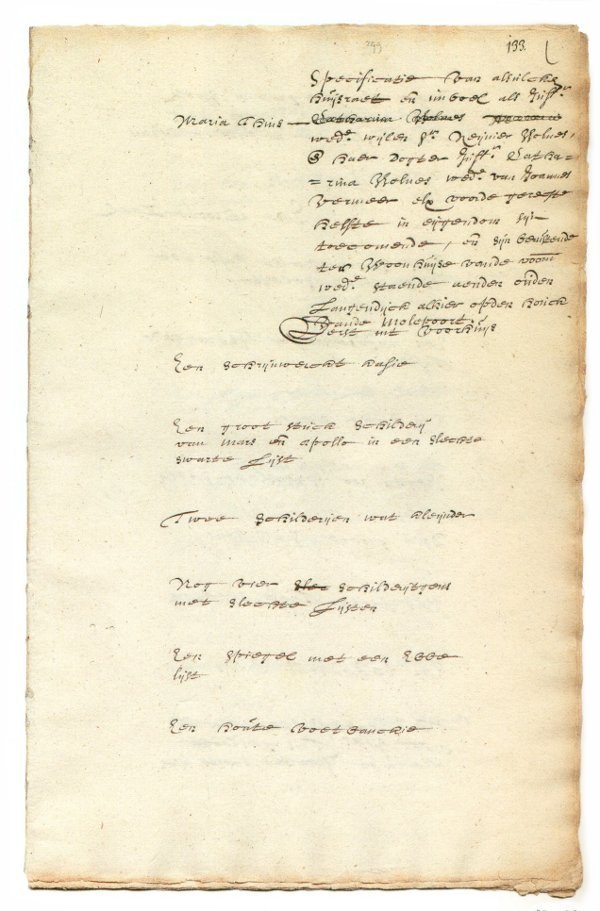 299
133.
Specificatie van alsulcke
huijsraet en inboel als Juffr.
Maria Thins Catharina Bolnes
wede. wijlen Sr. Reijnier Bolnes,
haer dogter Juffr. Catha=
=rina Bolnes wede. van Joannes
Vermeer elx voor de gerechte
helfte in eijgendom sijn
toecomende, en sijn bevindende
ten Woonhuijse vande voorn
wede. staende aen den ouden
Langendijck alhier op den houck
vande Molepoort.
Eerst int voorhuijs
Een schrijnwerckt kasie
Een groot stuck schilderij
van mars en apollo in een slechte
swarte Lijst
Twee schilderijen wat kleijnder
Nog vier slec schilderijtgens
met slechte Lijsten
Een spiegel met een Ebbe
lijst
Een houte voetbanckie